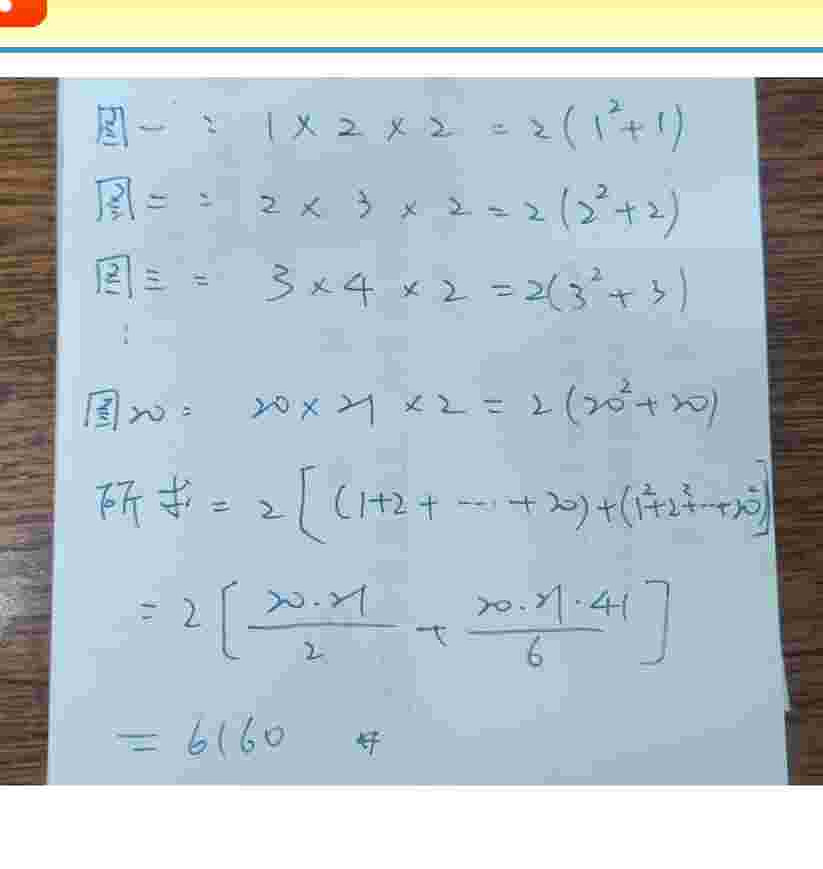 图一: 1 × 2 × 2 = 2(1²+1)
图二: 2 × 3 × 2 = 2(2²+2)
图三 = 3 × 4 × 2 = 2(3²+3)
⋮
图20: 20 × 21 × 2 = 2(20²+20)
所求 = 2[(1+2+⋯+20)+(1²+2²+⋯+20²)]
= 2[20·21/2 + 20·21·41/6]
= 6160 #